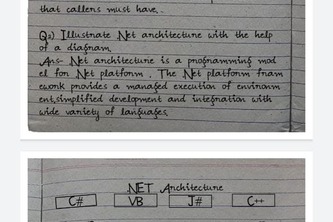 that callers must have.
Q2) Illustrate .Net architecture with the help
of a diagram
Ans- .Net architecture is a programming mod
el for .Net platform. The .Net platform fram
ework provides a managed execution of environm
ent, simplified development and integration with
wide variety of languages.
.NET Architecture
C# VB J# C++